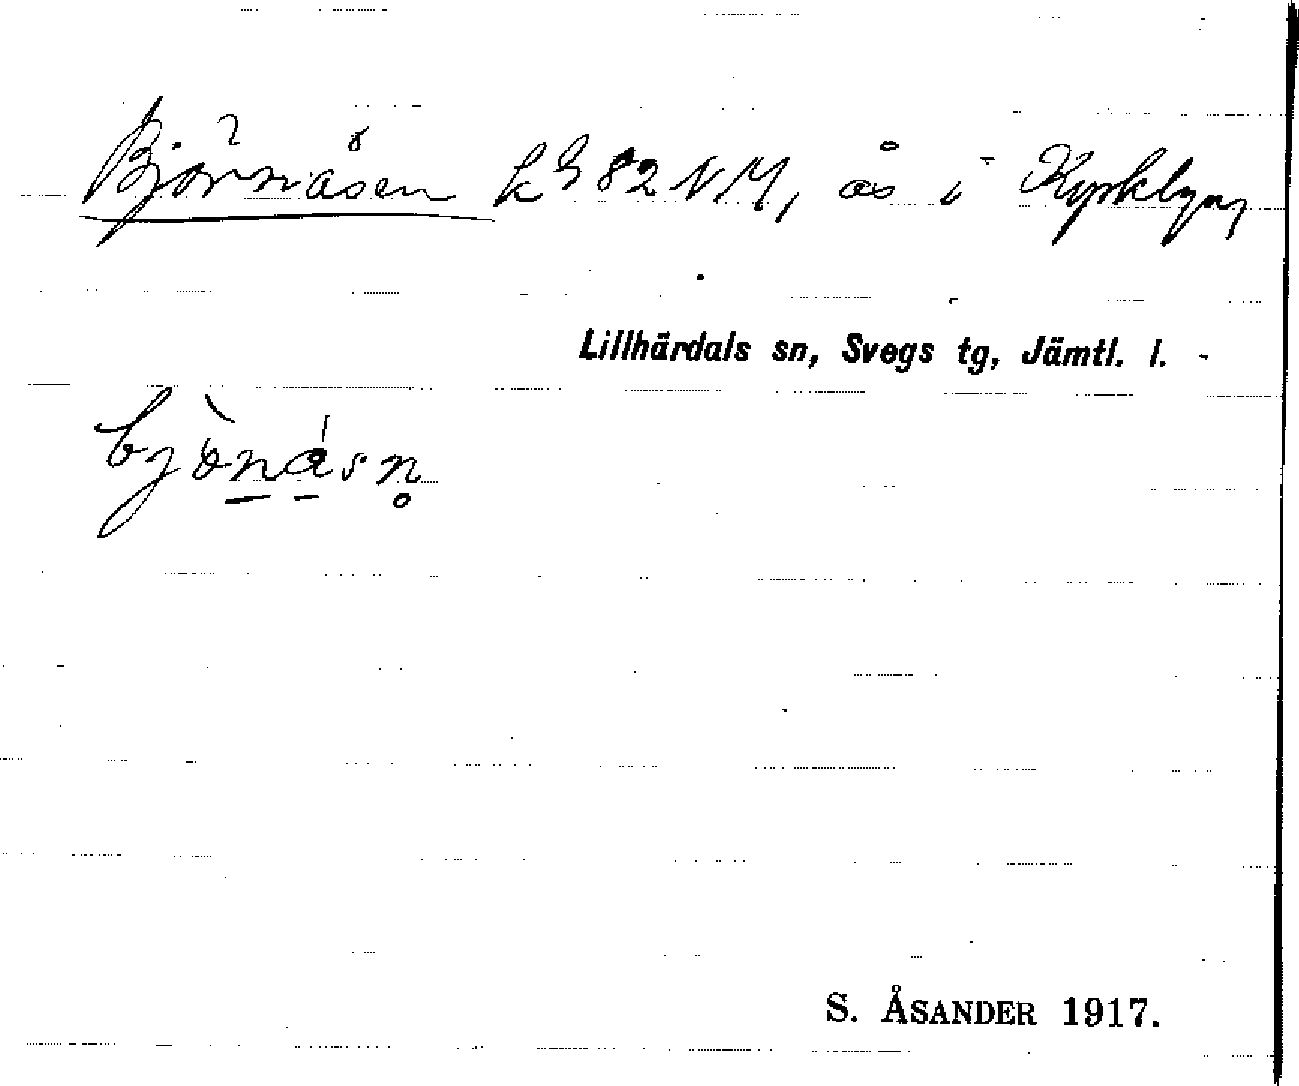 Björnåsen LG 82 NM, ås i Kyrkbyn,
Lillhärdals sn, Svegs tg, Jämtl. l.
bjònásn̥
S. ÅSANDER 1917.